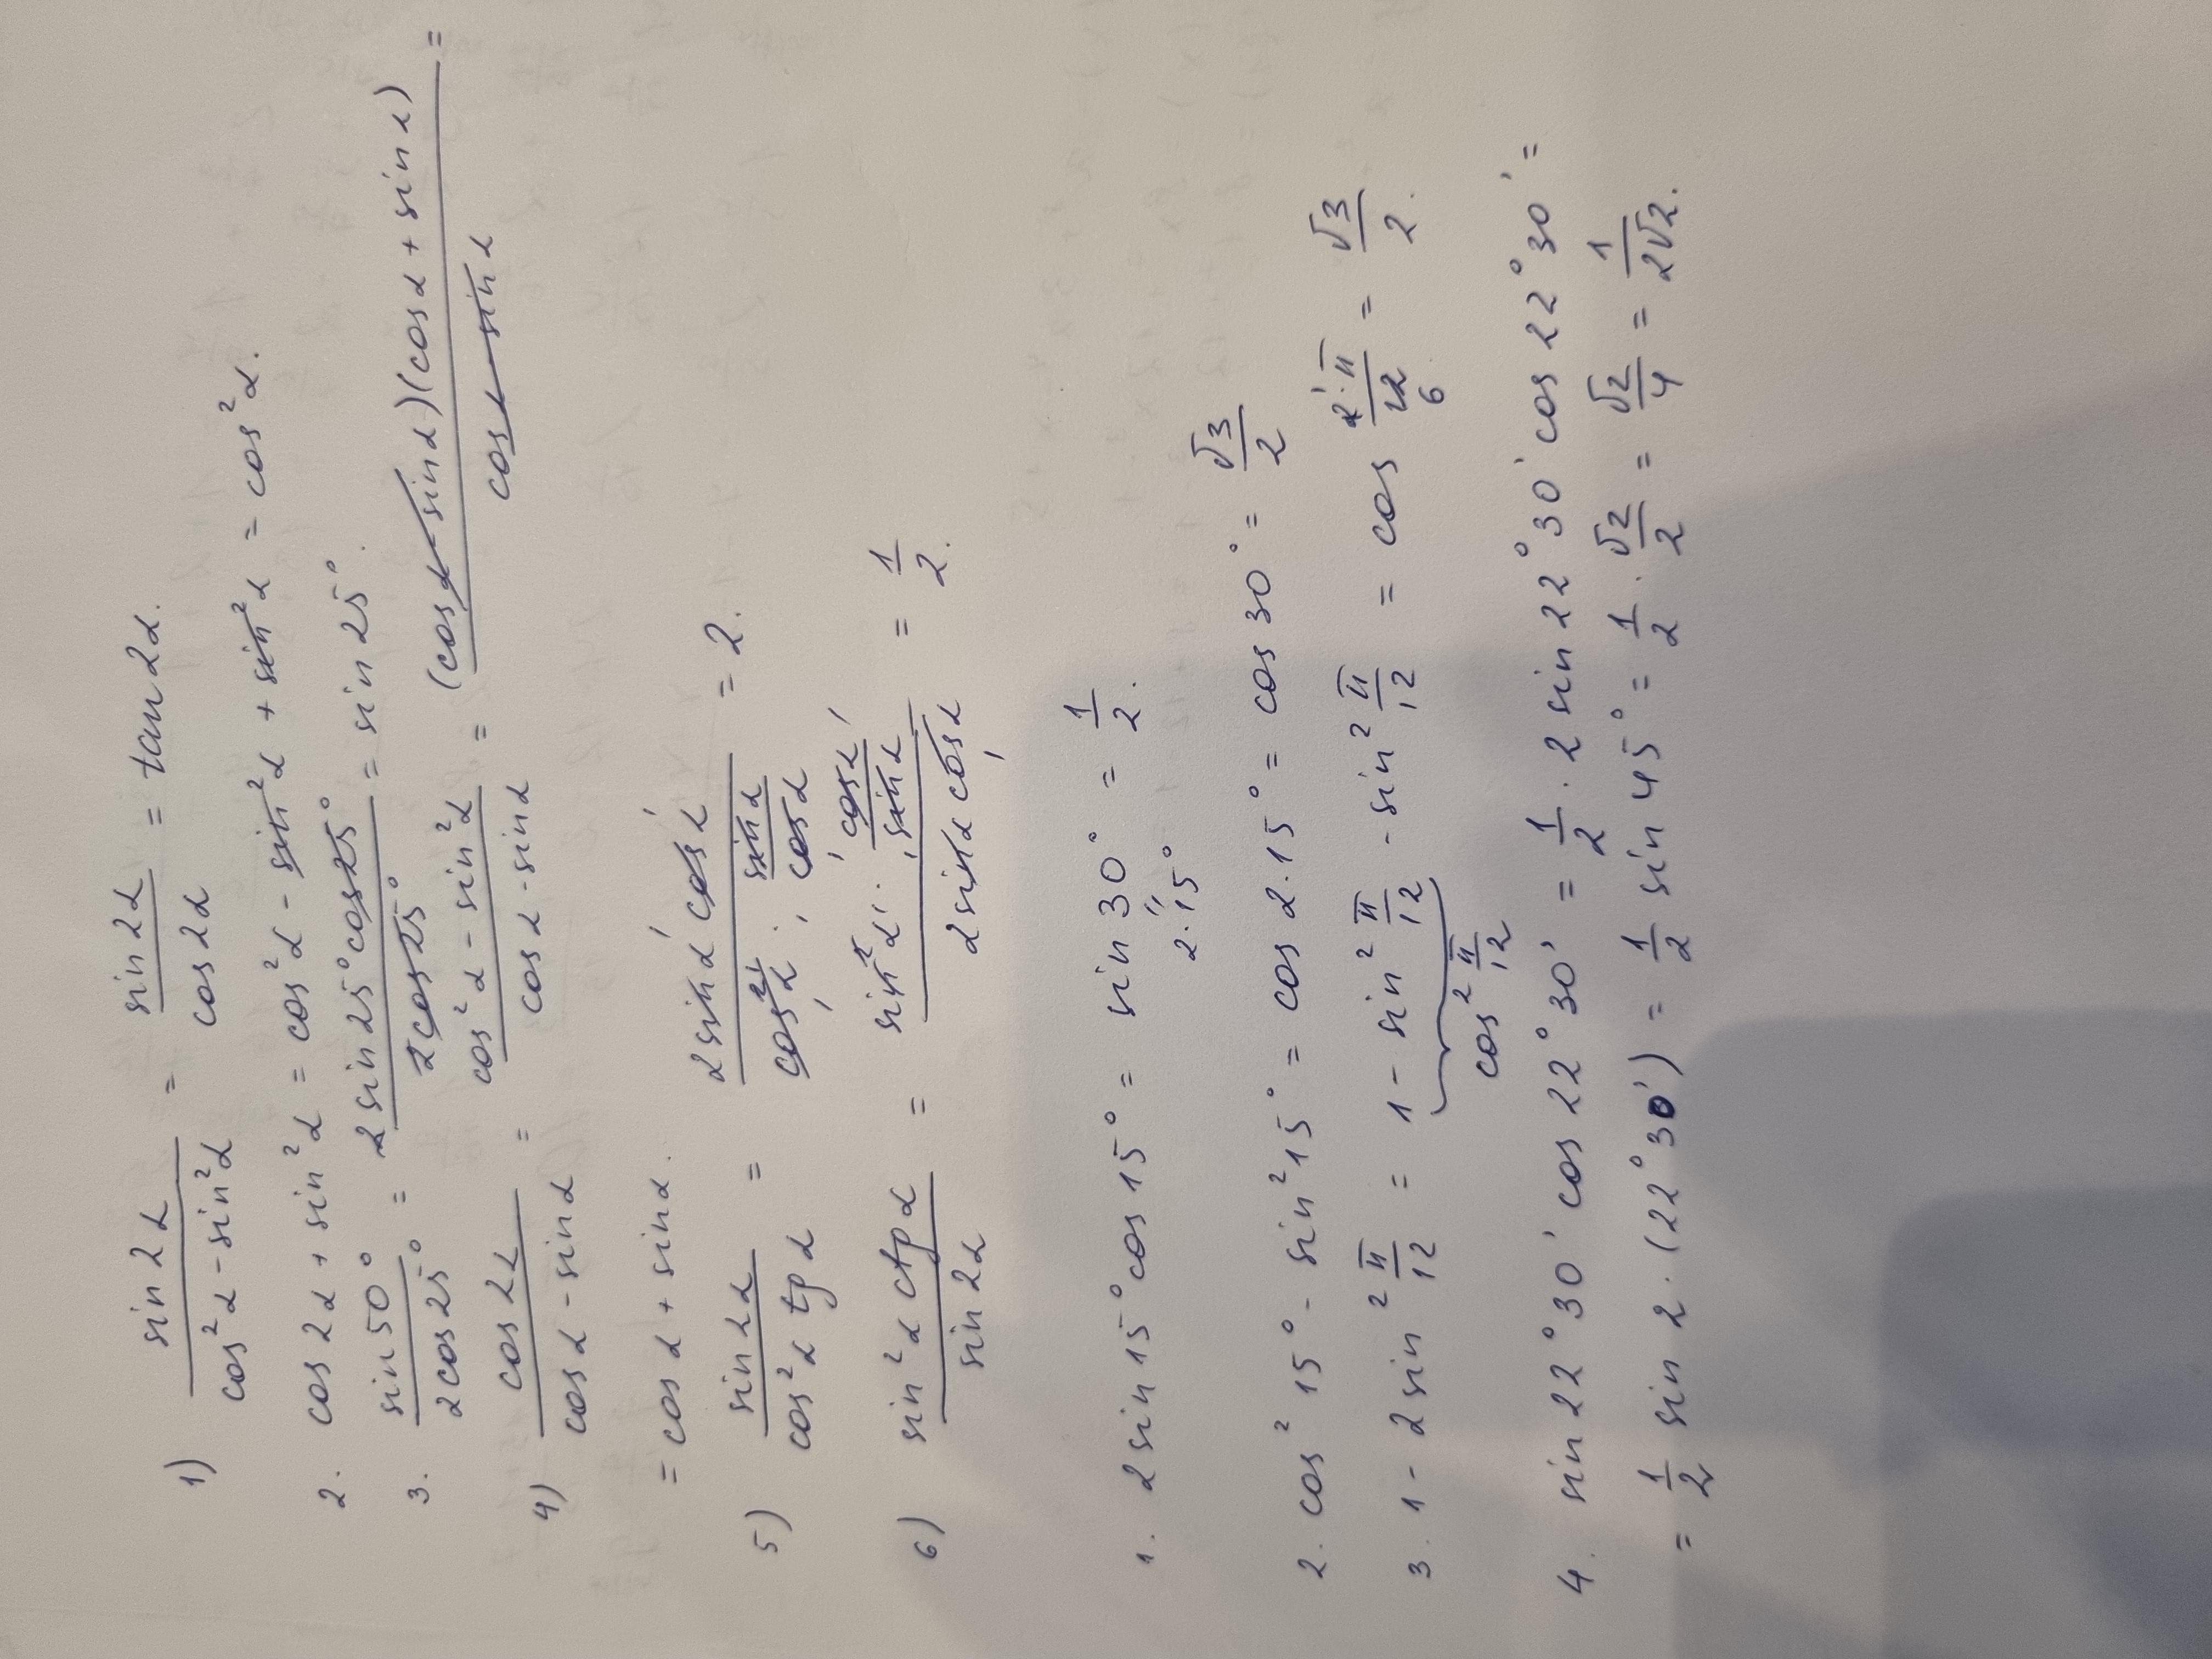 1) sin 2α / (cos²α - sin²α) = sin 2α / cos 2α = tan 2α.
2. cos 2α + sin²α = cos²α - sin²α + sin²α = cos²α.
3. sin 50° / 2cos 25° = 2 sin 25° cos 25° / 2 cos 25° = sin 25°.
4) cos 2α / (cos α - sin α) = (cos²α - sin²α) / (cos α - sin α) = (cos α - sin α)(cos α + sin α) / (cos α - sin α) =
= cos α + sin α.
5) sin 2α / (cos²α tg α) = 2 sin α cos α / (cos²α · sin α / cos α) = 2.
6) sin²α ctg α / sin 2α = (sin²α · cos α / sin α) / (2 sin α cos α) = 1/2.
1. 2 sin 15° cos 15° = sin 30° = 1/2.
"
2·15°
2. cos² 15° - sin² 15° = cos 2·15° = cos 30° = √3/2
3. 1 - 2 sin² π/12 = 1 - sin² π/12 - sin² π/12 = cos 2·π/12 = √3/2.
1 6
cos² π/12
4. sin 22°30' cos 22°30' = 1/2 · 2 sin 22°30' cos 22°30' =
= 1/2 sin 2·(22°30') = 1/2 sin 45° = 1/2 · √2/2 = √2/4 = 1/2√2.